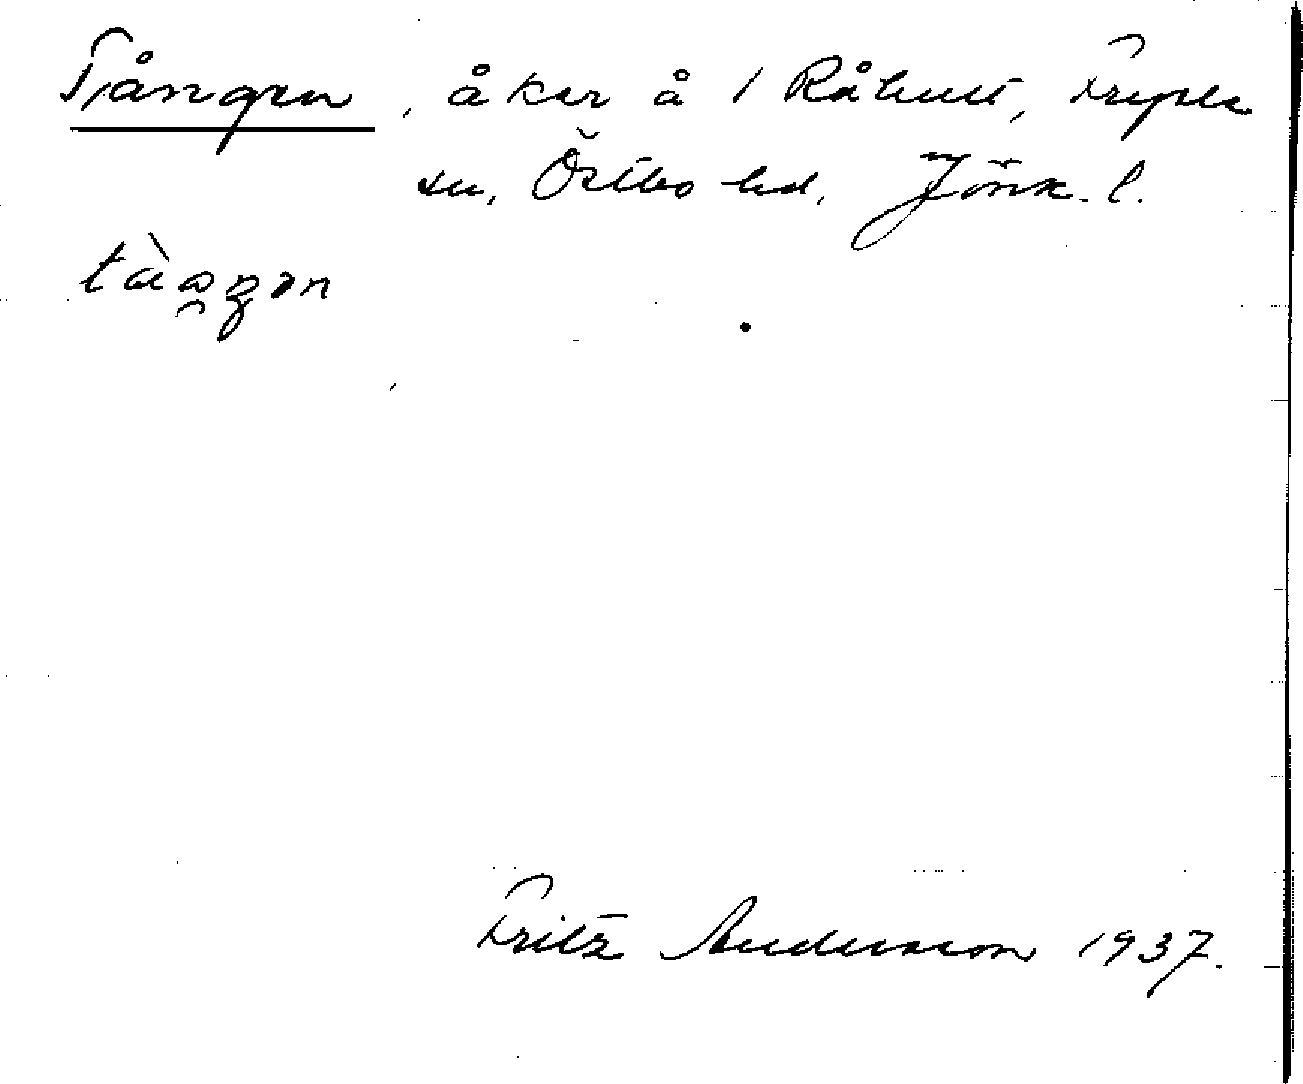 Tången, åker å 1 Råhult, Fryele
sn, Östbo hd, Jönk. l.
tàŋən
Fritz Andersson 1937.